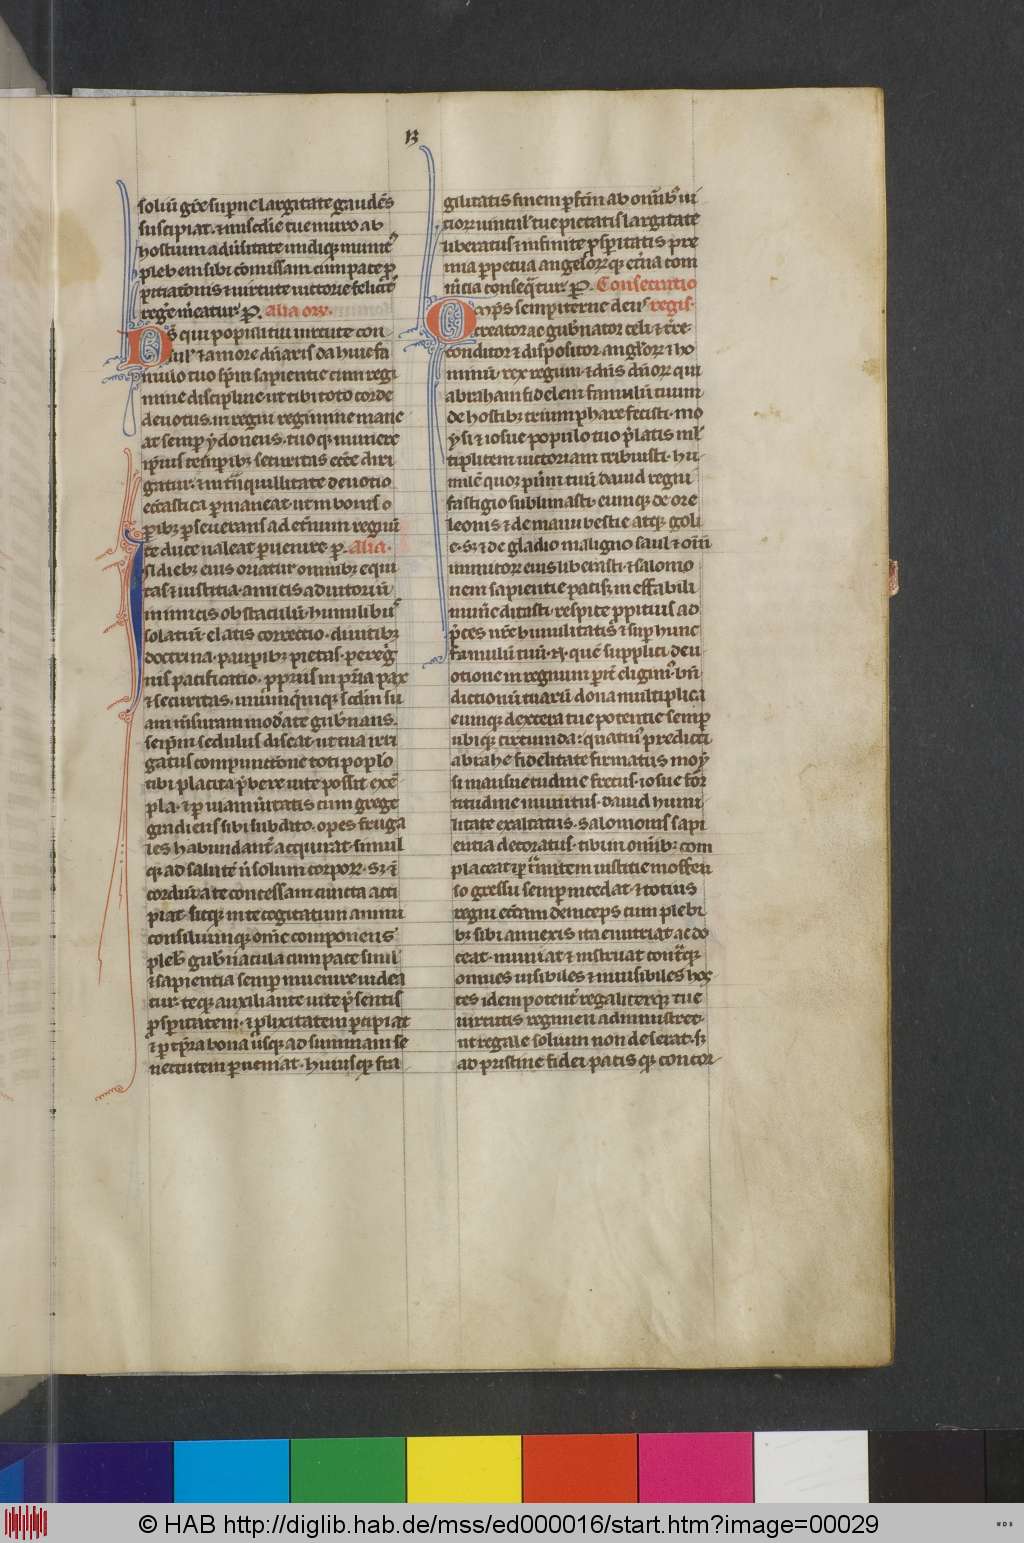 13
soliu᷒ gr̄e sup̄ne largitate gaudēs
suscipiat. ⁊ mis̄cdie tue muro ab
hostium adūsitate undiqꝫ munitꝰ
plebem sibi cōmissam cum pace ꝓ
piciatōnis ⁊ uirtute uictorie felicit̄
reḡe m̄eatur. P. Alia or̄o.
Ds̄ qui populis tuis uirtute con
sulis ⁊ amore dn̄aris da huic fa
mulo tuo sp̄m sapientie cum regi
mine discipline. ut tibi toto corde
deuotus. in regni regimine mane
at semp̲ ydoneus. tuo qꝫ munere
ip̄ius temp̲ibꝫ securitas ecc̄e diri
gatur. ⁊ in tn̄quillitate deuotio
ecc̄iastica p̲maneat. ut in bonis o
p̲ibꝫ p̲seuerans ad et̄num regnū
te duce ualeat p̲uenire. P. Alia.
In diebꝫ eius oriatur omnibꝫ equi
tas ⁊ iusticia. amicis adiutoriū
inimicis obstaculū. humilibus
solatiū. elatis correctio. diuitibꝫ
doctrina. paup̲ibꝫ pietas. pereḡ
nis pacificatio. p̲priis in pr̄ia pax
⁊ securitas. unūquēmqꝫ scd̄m su
am m̄suram mod̄ate gub̄nans.
seip̄m sedulus discat. ut tua irri
gatus compunctione toti populo
tibi placita p̄bere uite possit exē
pla. ⁊ p̲ uiam ūitatis cum grege
gradiens sibi subdito. opes fruga
les habundant̄ acquirat. simul
qꝫ ad salutē n̄ solum corporꝝ. sꝫ ⁊
cordiū a te concessam cuncta acci
piat. sicqꝫ in te cogitatum animi
consiliumqꝫ om̄e componens
pleb̄ gub̄nacula cum pace simul
⁊ sapientia semp̲ inuenire uidea
tur. teqꝫ auxiliante uite p̄sentis
ꝓsp̲itatem. ⁊ ꝓlixitatem p̲cipiat
⁊ p̲ tp̄ra bona usqꝫ ad summam se
nectutem p̲ueniat. huiusqꝫ fra
gilitatis finem p̲fc̄m ab om̄ibꝫ ui
ciorꝝ uinculis tue pietatis largitate
liberatus ⁊ infinite ꝓsp̲itatis pre
mia p̲petua angelorꝝqꝫ et̄na com
m̄cia conseq̄tur. P. Consecratio
Om̄ps sempiterne deus regis.
creator ac gub̄nator celi ⁊ tr̄e.
conditor ⁊ dispositor angl̄orꝝ ⁊ ho
minū. rex regum. ⁊ dn̄s dn̄orꝝ qui
abraham fidelem famulū tuum
de hostibꝫ triumphare fecisti. mo
ysi ⁊ iosue populo tuo p̄latis ml̄
tiplicem uictoriam tribuisti. hu
milē quoqꝫ puerum tuū dauid regni
fastigio sublimasti. eumqꝫ de ore
leonis ⁊ de manu bestie atqꝫ goli
e. sꝫ ⁊ de gladio maligno saul ⁊ om̄ū
inimicorꝝ eius liberasti. ⁊ salomo
nem sapientie pacisqꝫ ineffabili
munē ditasti. respice ꝓpitius ad
p̄ces nr̄e humilitatis ⁊ sup̲ hunc
famulū tuū. N. quē supplici deu
otione in regnum parit̄ eligimꝰ. bn̄
dictionū tuarū dona multiplica
eumqꝫ dextera tue potentie semp̲
ubiqꝫ circumda: quatinus predicti
abrahe fidelitate firmatus moy
si mansuetudine fretus. iosue for
titudine munitus. dauid humi
litate exaltatus. salomonis sapi
entia decoratus. tibi in om̄ibꝫ com
placeat. ⁊ p̲ tr̄mitem iusticie inoffen
so gressu semp̲ incedat. ⁊ totius
regni ecc̄iam deinceps cum plebi
bꝫ sibi annexis ita enutriat ac do
ceat. muniat ⁊ instruat contraqꝫ
omnes uisibiles ⁊ inuisibiles hos
tes idem potent̄ regaliterqꝫ tue
uirtutis regimen administret.
ut regale solium non deserat. sꝫ
ad pristine fidei pacisqꝫ concor
© HAB http://diglib.hab.de/mss/ed000016/start.htm?image=00029